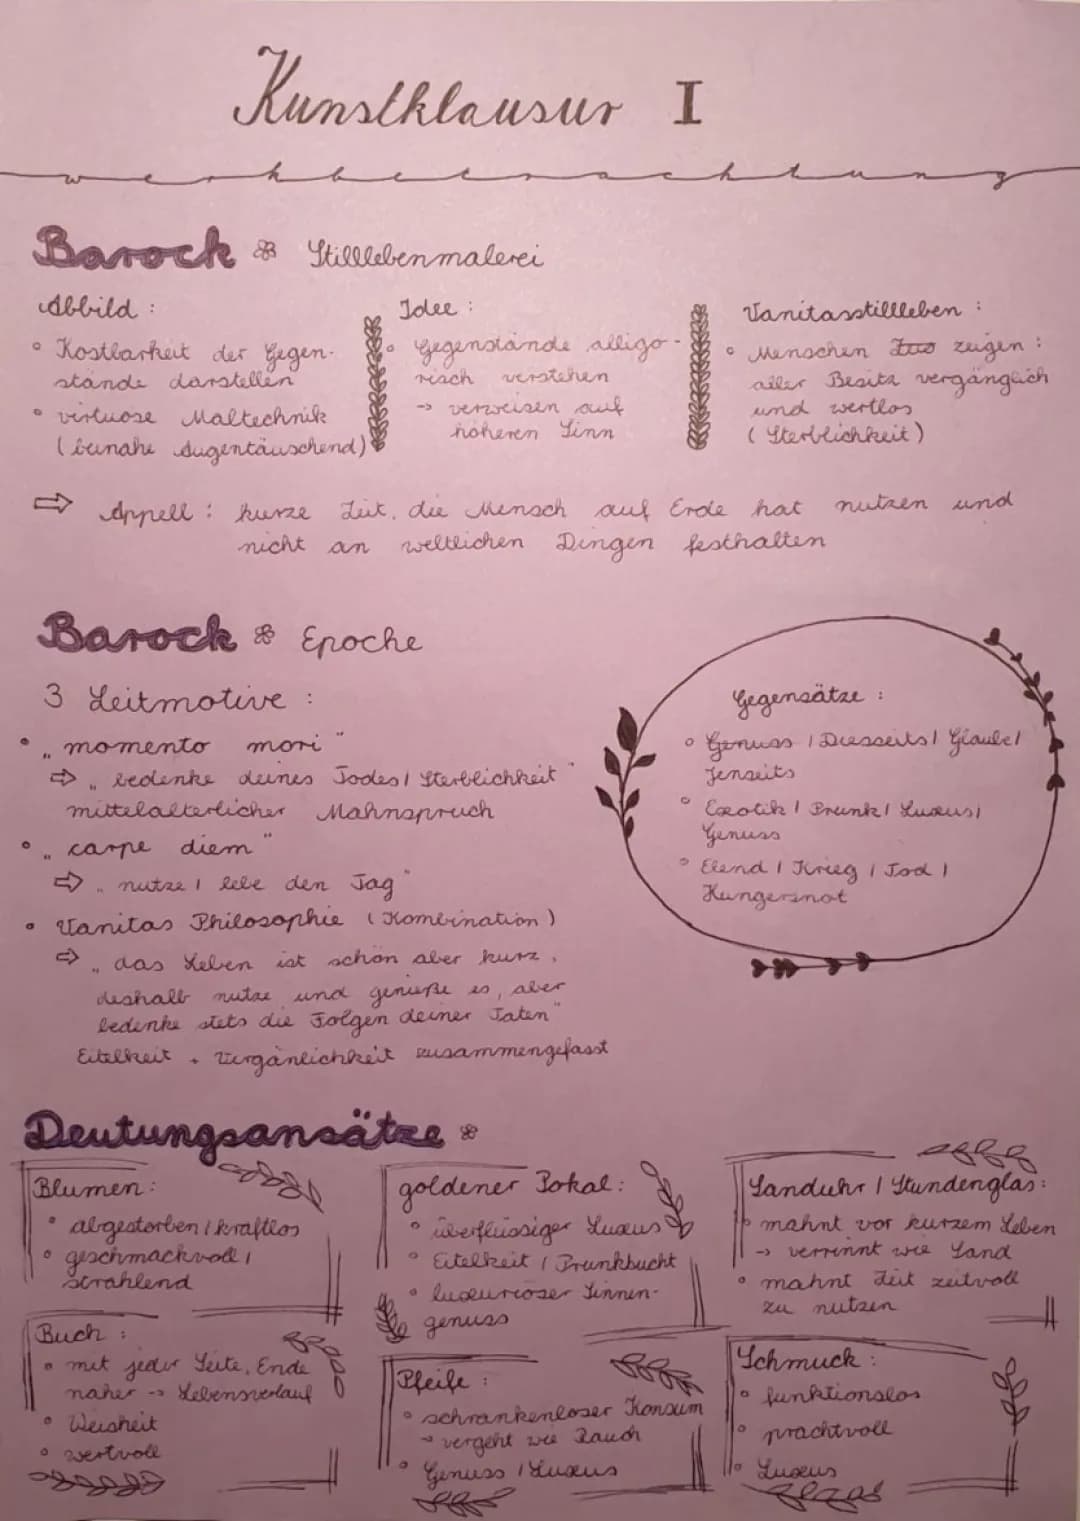 Kunstklausur I
werkbetrachtung
Barock Stilllebenmalerei
Abbild :
• Kostbarkeit der Gegen-
stände darstellen
• virtuose Maltechnik
(beinahe Augentäuschend)
Idee :
• Gegenstände alligo-
risch verstehen
→ verweisen auf
höheren Sinn
Vanitasstillleben :
• Menschen zeigen :
aller Besitz vergänglich
und wertlos
(Sterblichkeit)
⇒ Appell : kurze Zeit, die Mensch auf Erde hat nutzen und
nicht an weltlichen Dingen festhalten
Barock Epoche
3 Leitmotive :
• „momento mori"
⇒ „bedenke deines Todes/ Sterblichkeit"
mittelalterlicher Mahnspruch
• „carpe diem"
⇒ „nutze / lebe den Tag"
• Vanitas Philosophie (Kombination)
⇒ „das Leben ist schön aber kurz,
deshalb nutze und genieße es, aber
bedenke stets die Folgen deiner Taten"
Eitelkeit + Vergänlichkeit zusammengefasst
Gegensätze :
• Genuss / Diesseits / Glaube /
Jenseits
• Exotik / Prunk / Luxus /
Genuss
• Elend / Krieg / Tod /
Hungersnot
Deutungsansätze
Blumen :
• abgestorben / kraftlos
• geschmackvoll /
strahlend
goldener Pokal :
• überflüssiger Luxus
• Eitelkeit / Prunkbucht
• luxuriöser Sinnen-
genuss
Sanduhr / Stundenglas :
• mahnt vor kurzem Leben
→ verrinnt wie Sand
• mahnt Zeit zeitvoll
zu nutzen
Buch :
• mit jeder Seite, Ende
naher → Lebensverlauf
• Weisheit
• wertvoll
Pfeife :
• schrankenloser Konsum
→ vergeht wie Rauch
• Genuss / Luxus
Schmuck :
• funktionslos
• prachtvoll
• Luxus